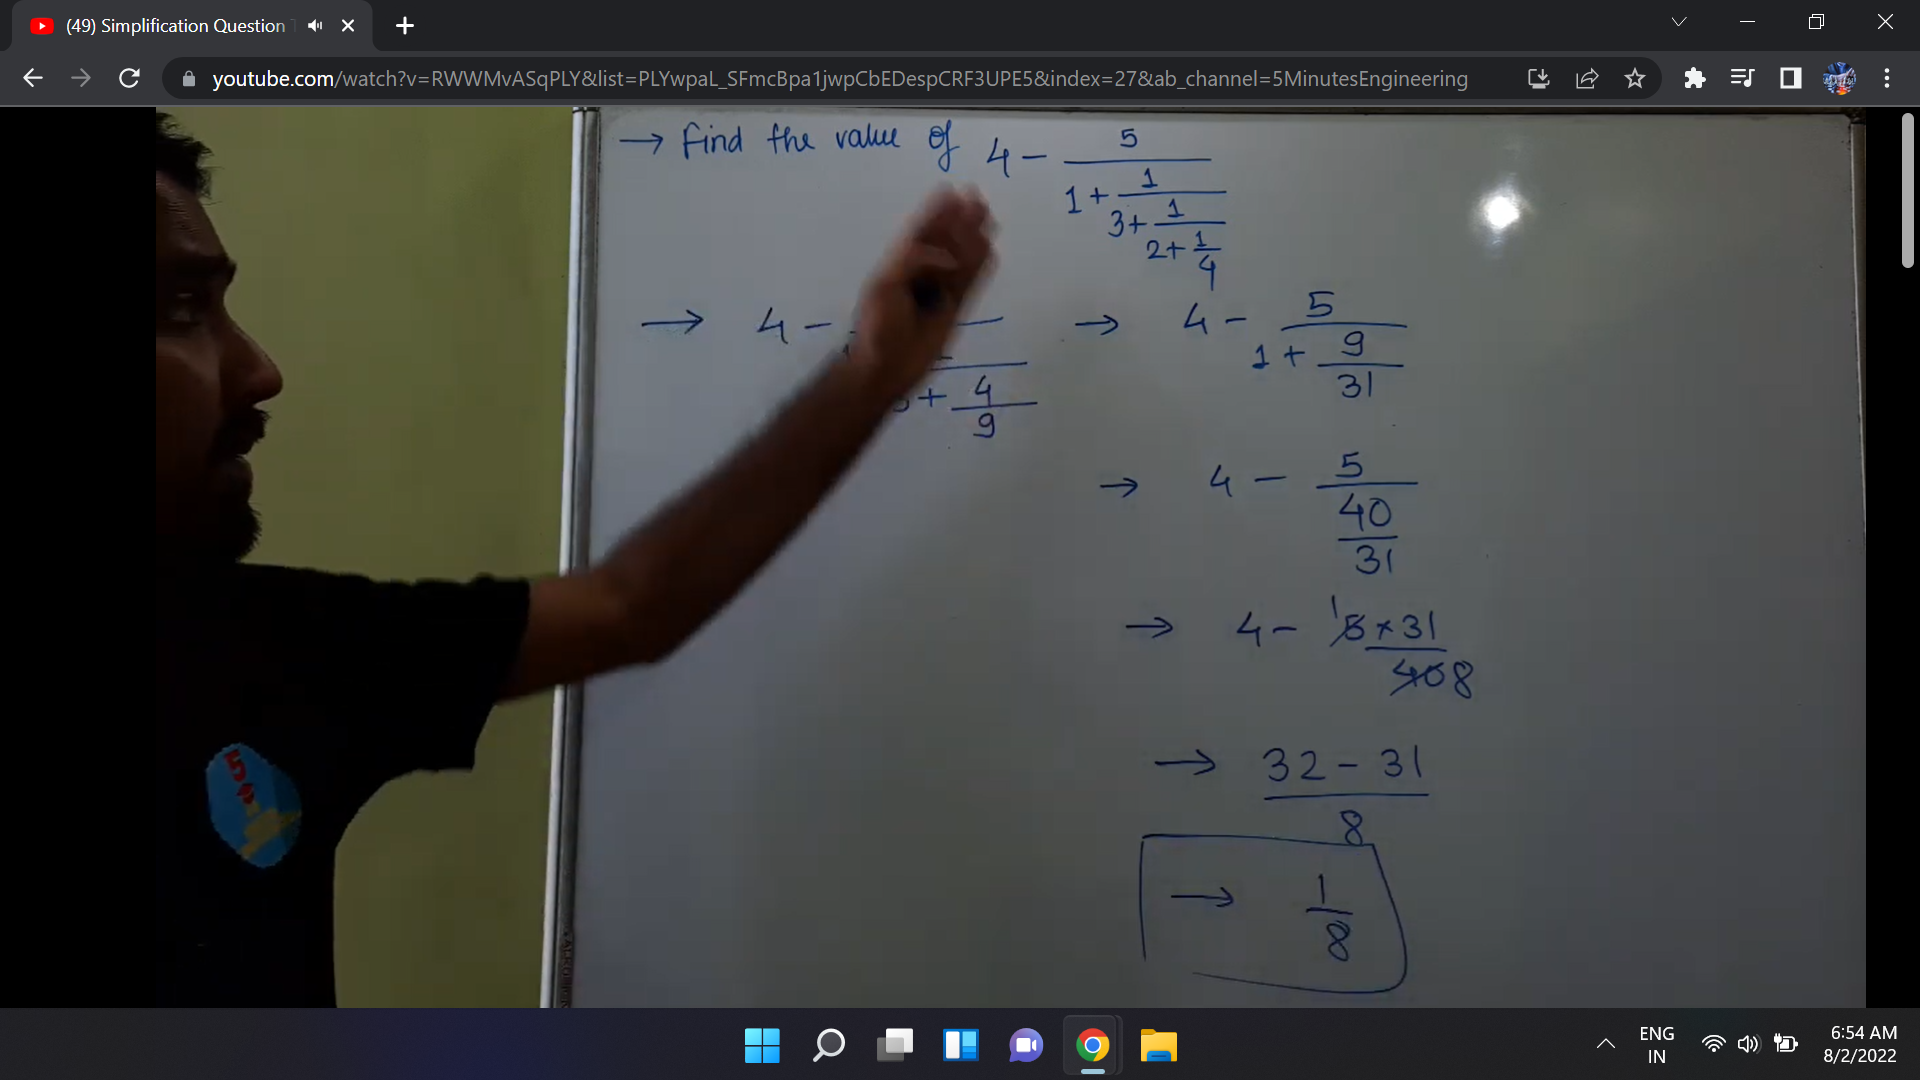 (49) Simplification Question
youtube.com/watch?v=RWWMvASqPLY&list=PLYwpaL_SFmcBpa1jwpCbEDespCRF3UPE5&index=27&ab_channel=5MinutesEngineering
→ Find the value of 4 - 5/(1 + 1/(3 + 1/(2 + 1/4)))
→ 4 -
+ 4/9
→ 4 - 5/(1 + 9/31)
→ 4 - 5/(40/31)
→ 4 - 1 5 × 31 / 40 8
→ 32 - 31 / 8
→ 1/8
5
ENG
IN
6:54 AM
8/2/2022